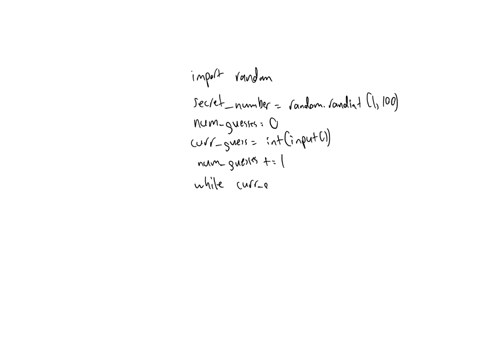 import random
secret_number = random.randint(1,100)
num_guesses = 0
curr_guess = int(input())
num_guesses += 1
while curr_g